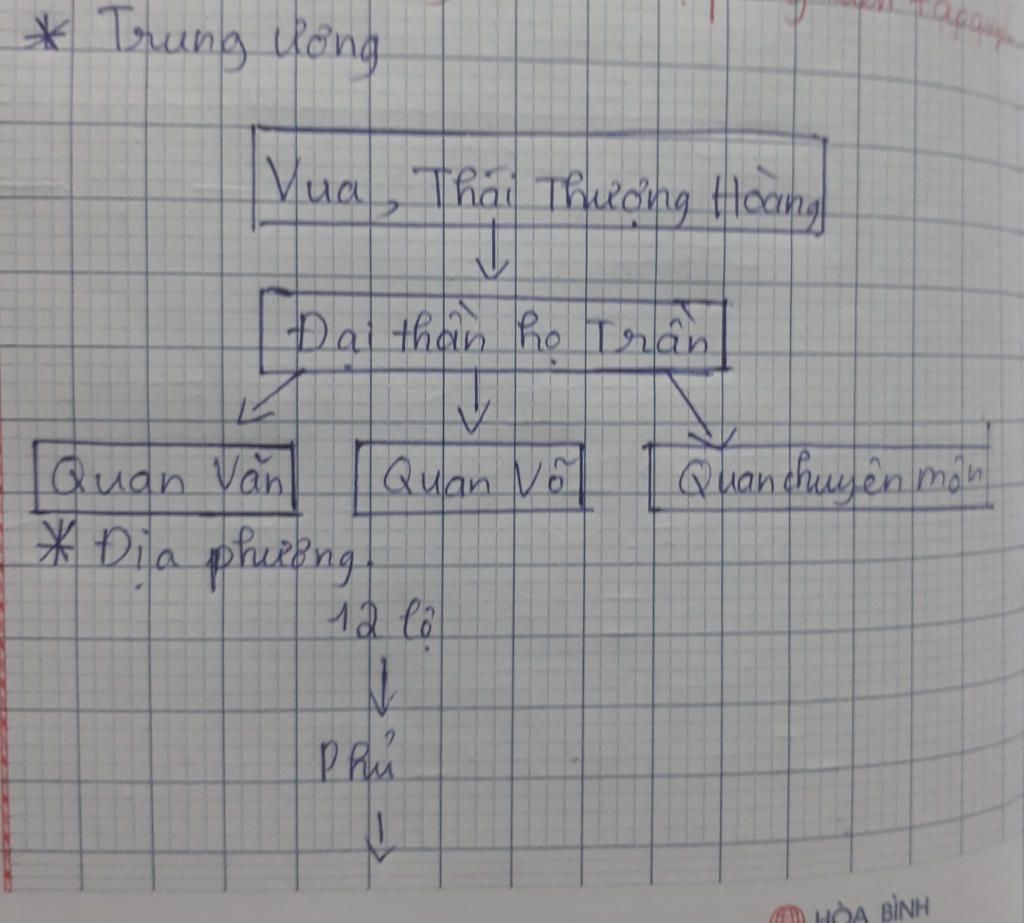 * Trung ương
Vua, Thái Thượng Hoàng
Đại thần họ Trần
Quan Văn Quan Võ Quan chuyên môn
* Địa phương.
12 lộ
Phủ
HÒA BÌNH